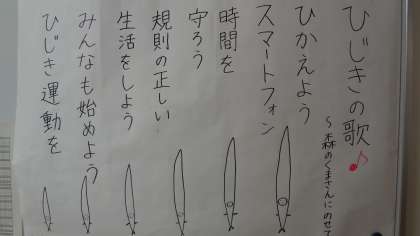 ひじきの歌♪
～森のくまさんにのせて
ひかえよう
スマートフォン
時間を
守ろう
規則の正しい
生活をしよう
みんなも始めよう
ひじき運動を